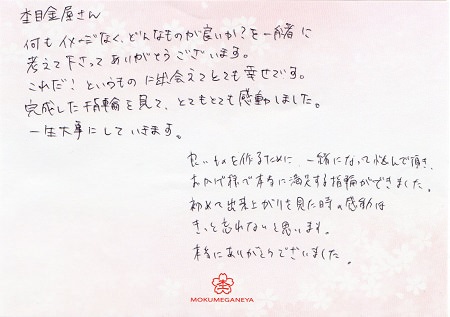 杢目金屋さん
何もイメージなく、どんなものが良いか？を一緒に
考えて下さってありがとうございます。
これだ！というものに出会えてとても幸せです。
完成した指輪を見て、とてもとても感動しました。
一生大事にしていきます。
良いものを作るために一緒になって悩んで頂き、
おかげ様で本当に満足する指輪ができました。
初めて出来上がりを見た時の感動は
きっと忘れないと思います。
本当にありがとうございました。
MOKUMEGANEYA